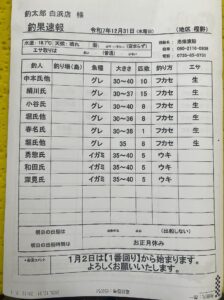 釣太郎 白浜店 様
釣果速報
令和7年12月31日(水曜日)
(地区 椿 )
水温: 18.7℃ 天候: 晴れ
エサ取りは (普通)
釣人 釣り場(島) 魚種 大きさ 匹数 釣り方 エサ
中本氏他 グレ 30〜40 10 フカセ 生
グレ 35〜37 15 フカセ 生
小谷氏 グレ 30〜40 8 フカセ 生
堀氏他 グレ 30〜36 8 フカセ 生
春名氏 グレ 30〜36 1 フカセ 生
堀氏他 グレ 35 8 フカセ 生
勇惣氏 イガミ 35〜40 5 ウキ
和田氏 イガミ 35〜40 5 ウキ
深見氏 イガミ 35〜40 5 ウキ
明日の出船は (出船しない)
明日の出船時間は お正月休み
1月2日は【1番回り】から始まります。
よろしくお願いいたします。